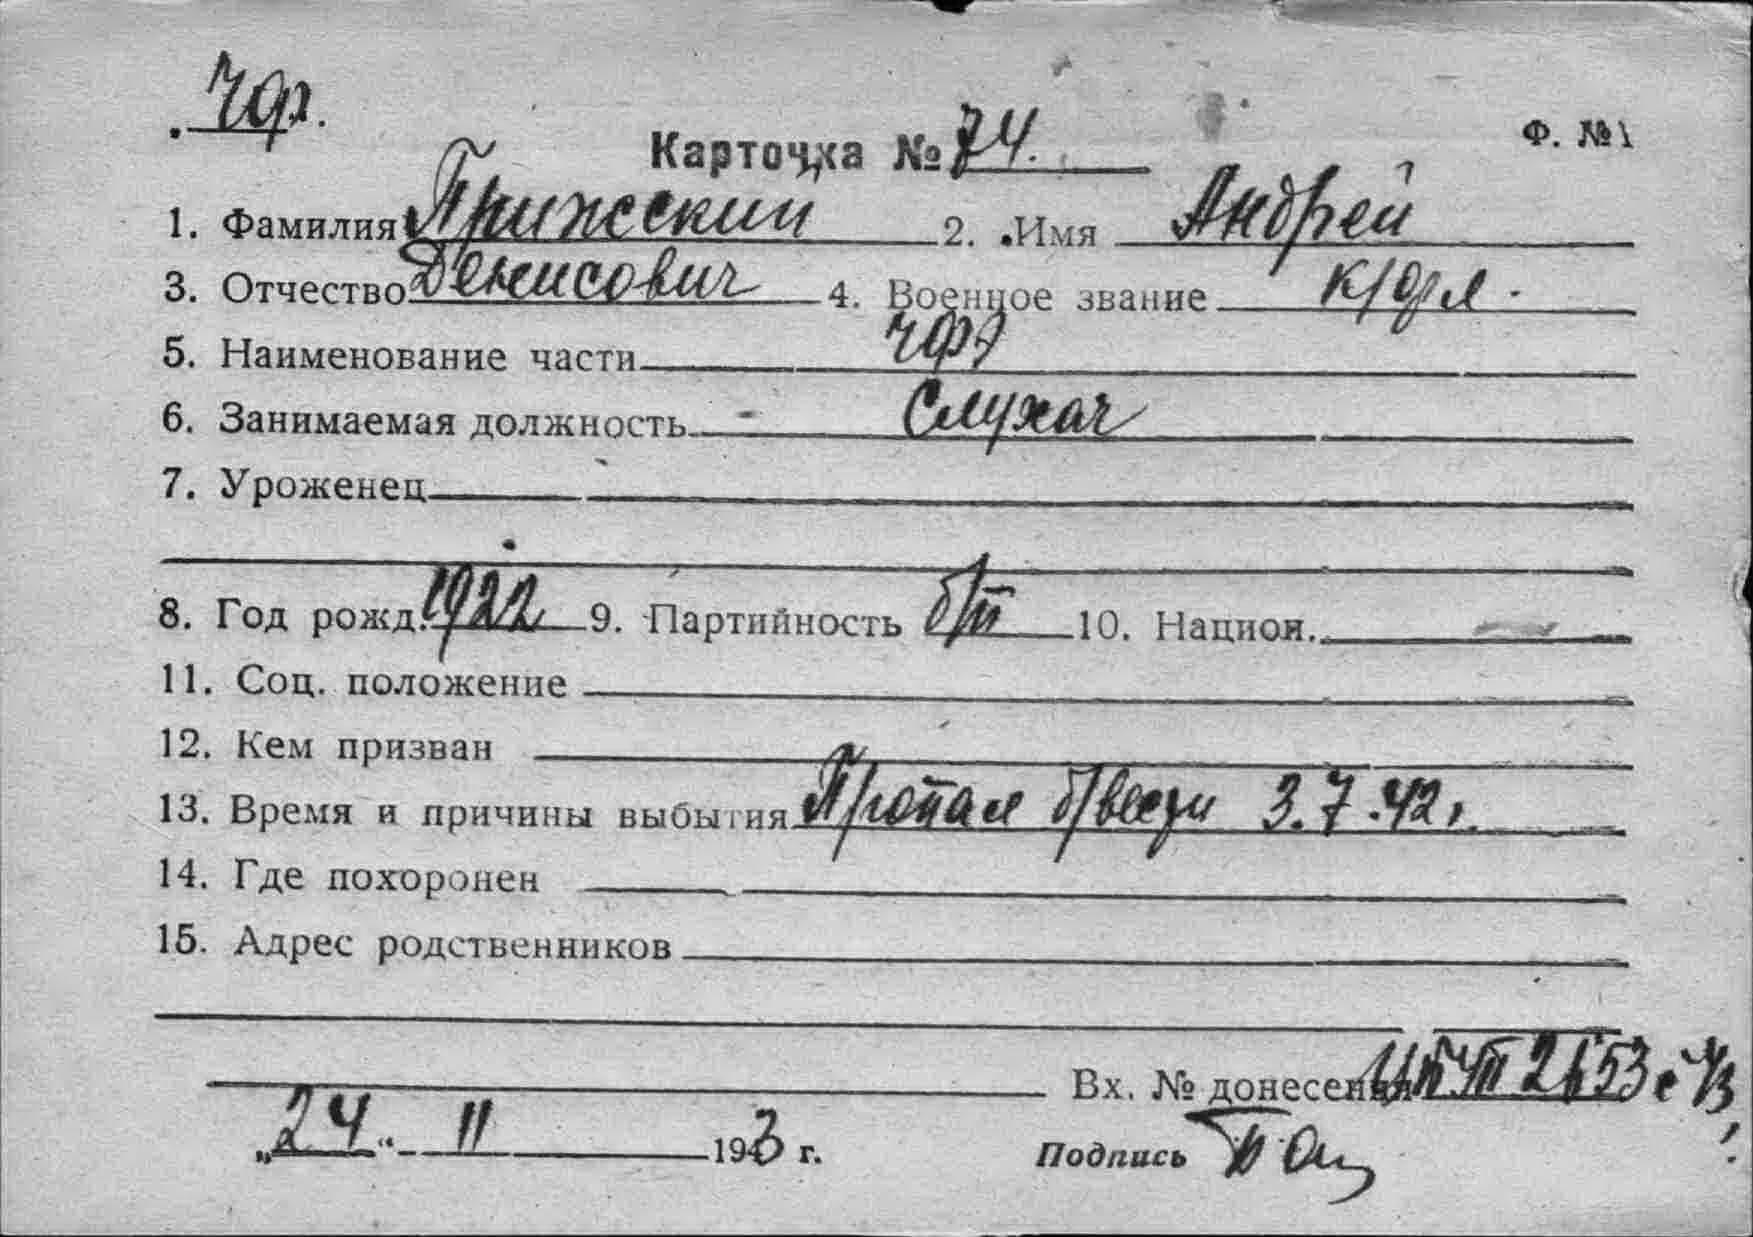 ЧФ.
Карточка № 74. Ф. №1
1. Фамилия Пряжский 2. Имя Андрей
3. Отчество Денисович 4. Военное звание к/фл.
5. Наименование части ЧФ
6. Занимаемая должность Слухач
7. Уроженец
8. Год рожд. 1922 9. Партийность б/п 10. Национ.
11. Соц. положение
12. Кем призван
13. Время и причины выбытия Пропал б/вести 3.7.42г.
14. Где похоронен
15. Адрес родственников
Вх. № донесения
„24“ 11 1943 г. Подпись